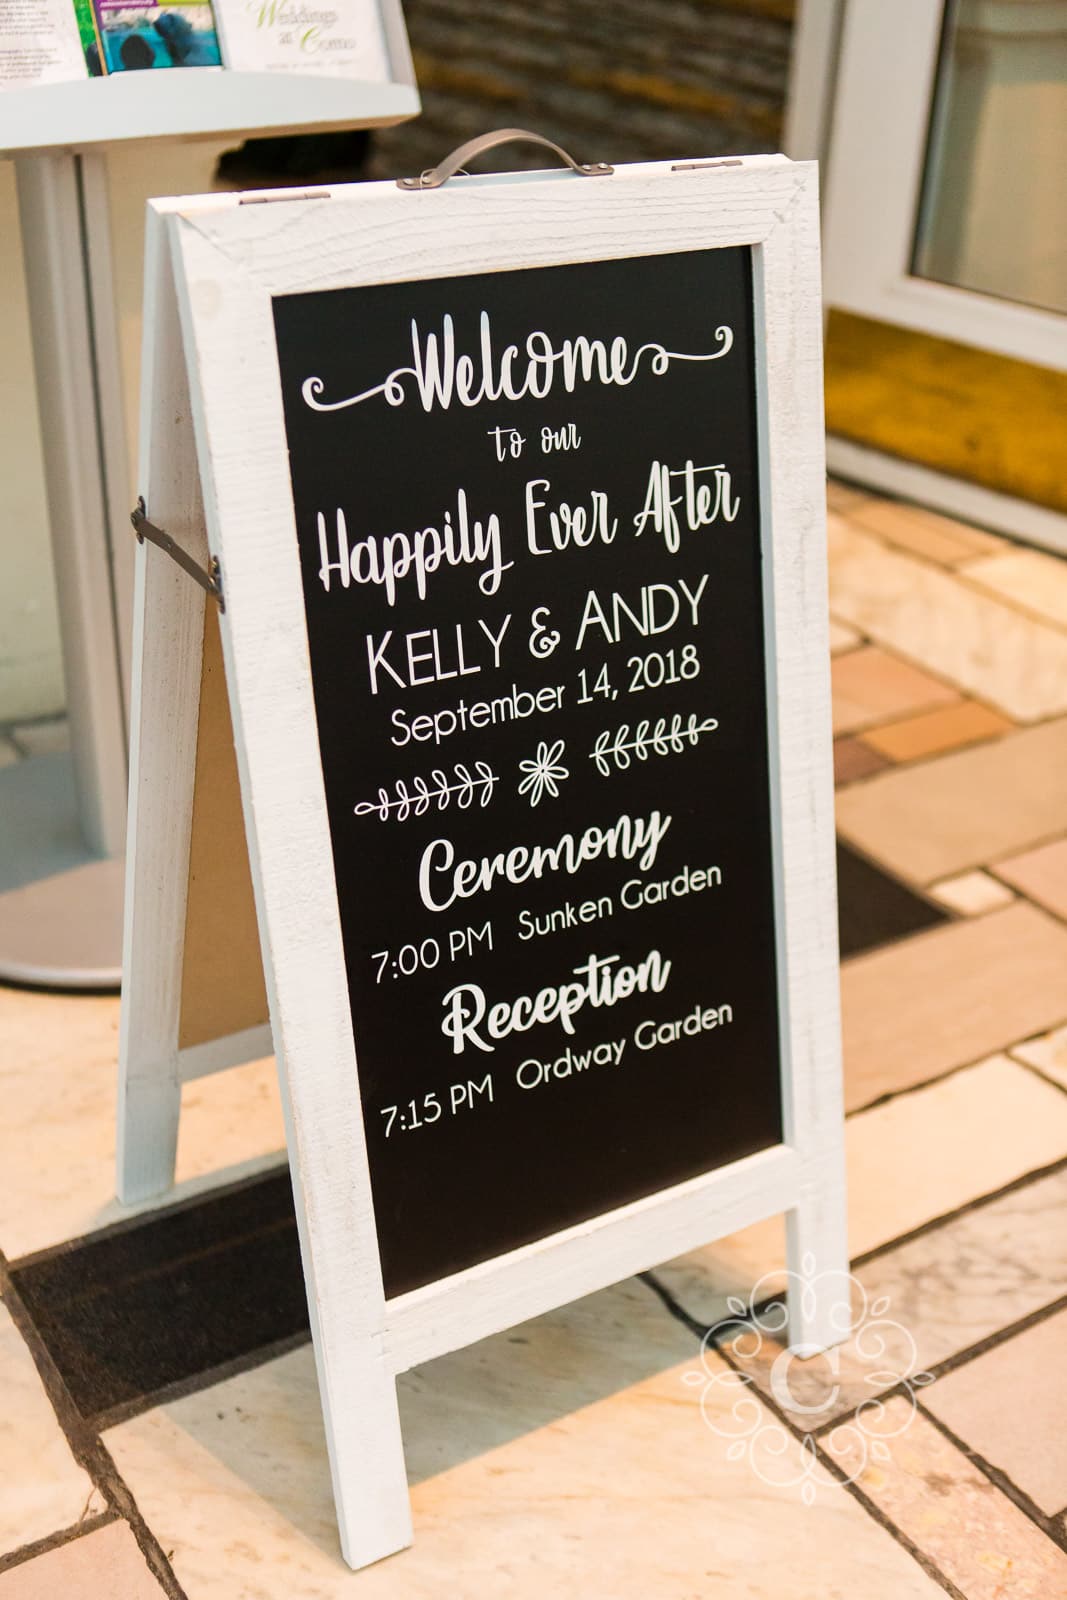 Weddings
at Como
Welcome
to our
Happily Ever After
KELLY & ANDY
September 14, 2018
Ceremony
7:00 PM Sunken Garden
Reception
7:15 PM Ordway Garden
C